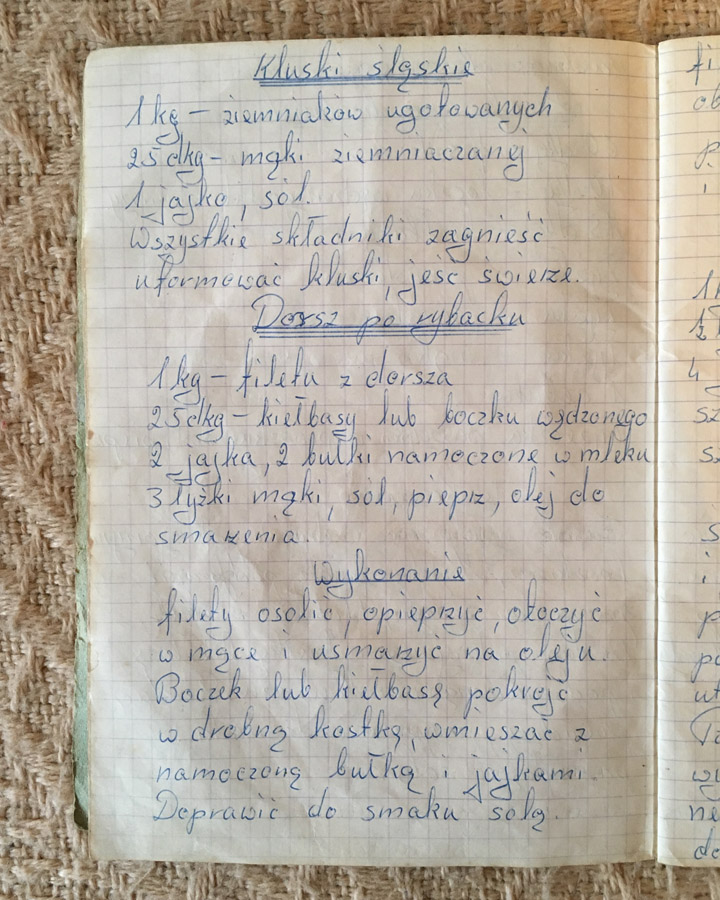 Kluski śląskie
1 kg – ziemniaków ugotowanych
25 dkg – mąki ziemniaczanej
1 jajko, sól.
Wszystkie składniki zagnieść
uformować kluski, jeść świeże.
Dorsz po rybacku
1 kg – filetu z dorsza
25 dkg – kiełbasy lub boczku wędzonego
2 jajka, 2 bułki namoczone w mleku
3 łyżki mąki, sól, pieprz, olej do
smażenia.
Wykonanie
filety osolić, opieprzyć, otoczyć
w mące i usmażyć na oleju.
Boczek lub kiełbasę pokroić
w drobną kostkę, wmieszać z
namoczoną bułką i jajkami.
Doprawić do smaku solą.